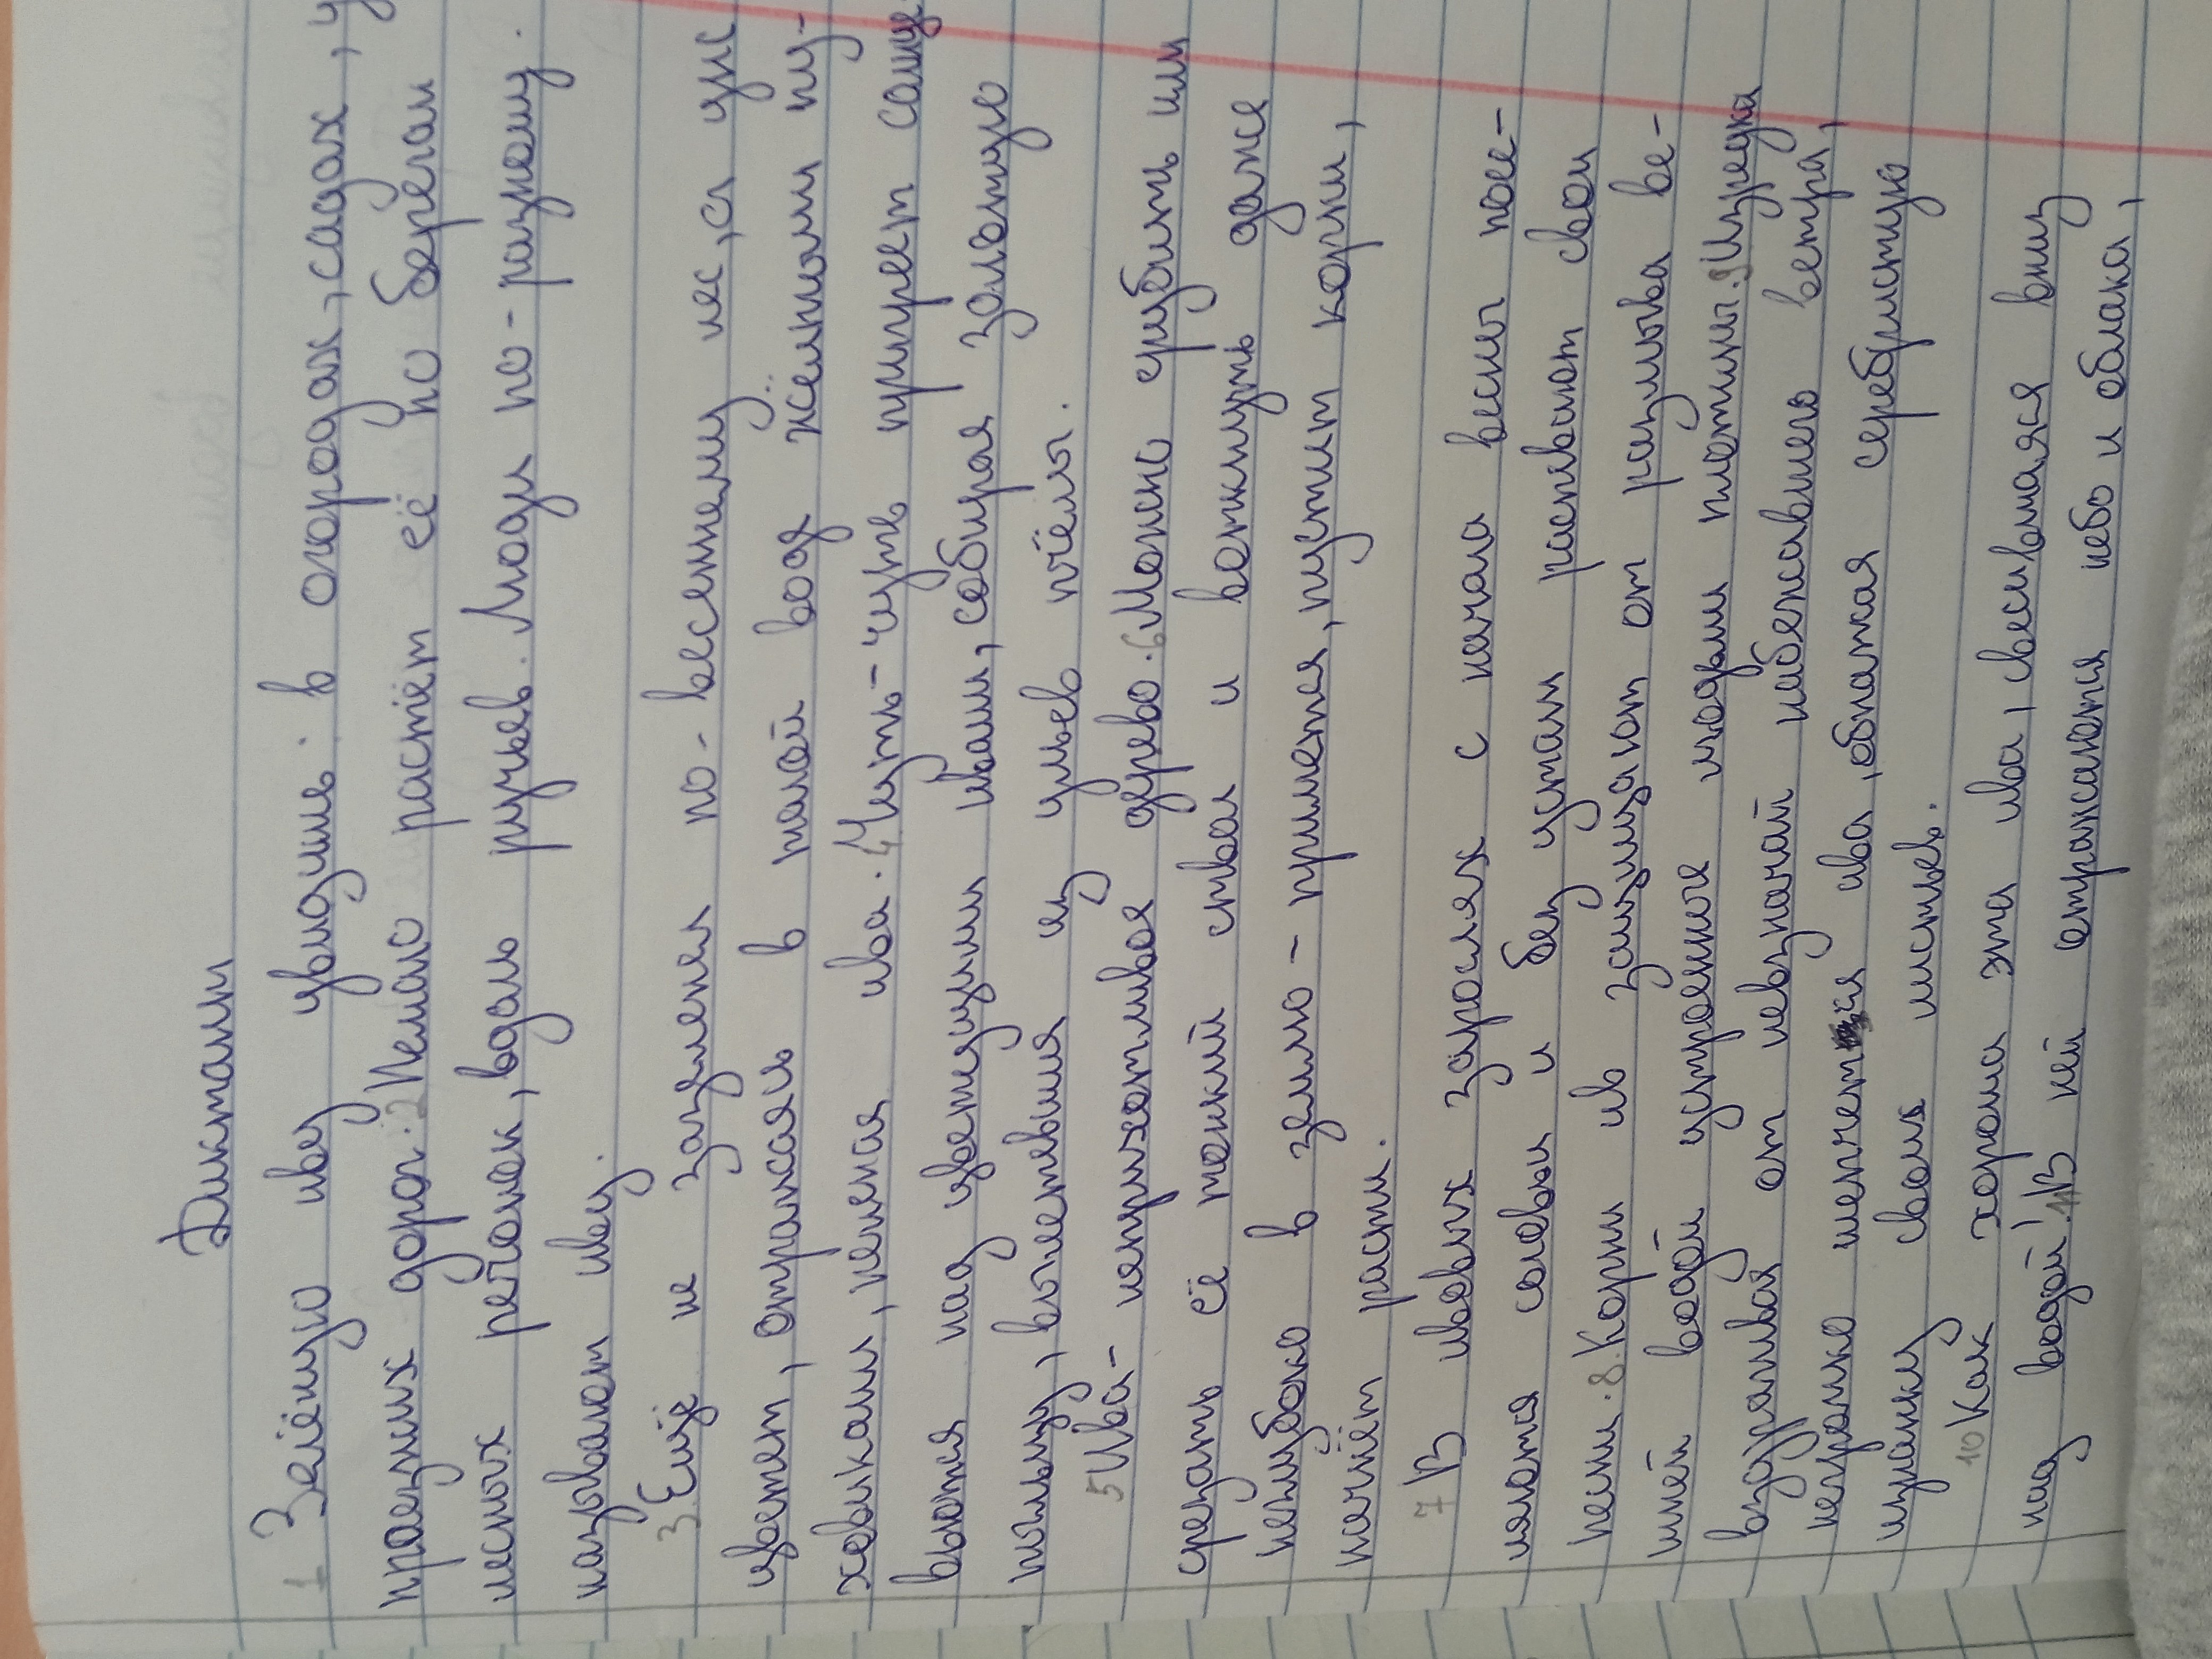 Диктант
1 Зелёную иву увидишь: в огородах, садах, у
проезжих дорог. 2 Пышно растёт её по берегам
лесных речонок, вдоль ручьев. Люди по-разному
называют иву.
3. Ещё не зазеленел по-весеннему лес, а уже
цветет, отражаясь в талой воде жёлтыми пу-
ховиками, нежная ива. 4 Чуть-чуть пригреет солнце
вьются над цветущими ивами, собирая золотую
пыльцу, вылетевшия из ульев пчёлы.
5 Ива- неприхотливая дерево. 6. Можно срубить или
срезать её тонкий ствол и воткнуть даже
неглубоко в землю - примется, пустит корни,
начнёт расти.
7 В ивовых зарослях с начала весны посе-
ляются соловьи и без устали распевают свои
песни. 8. Корни ив защищают от размыва ве-
шней водой устроенные людьми плотины. 9 Изредка
вздрагивая от невзначай набежавшего ветра,
негромко шепчется ива, обнажая серебристую
изнанку своих листьев.
10 Как хороша эта ива, свесившаяся вниз
над водой! 11 В ней отражаются небо и облака,